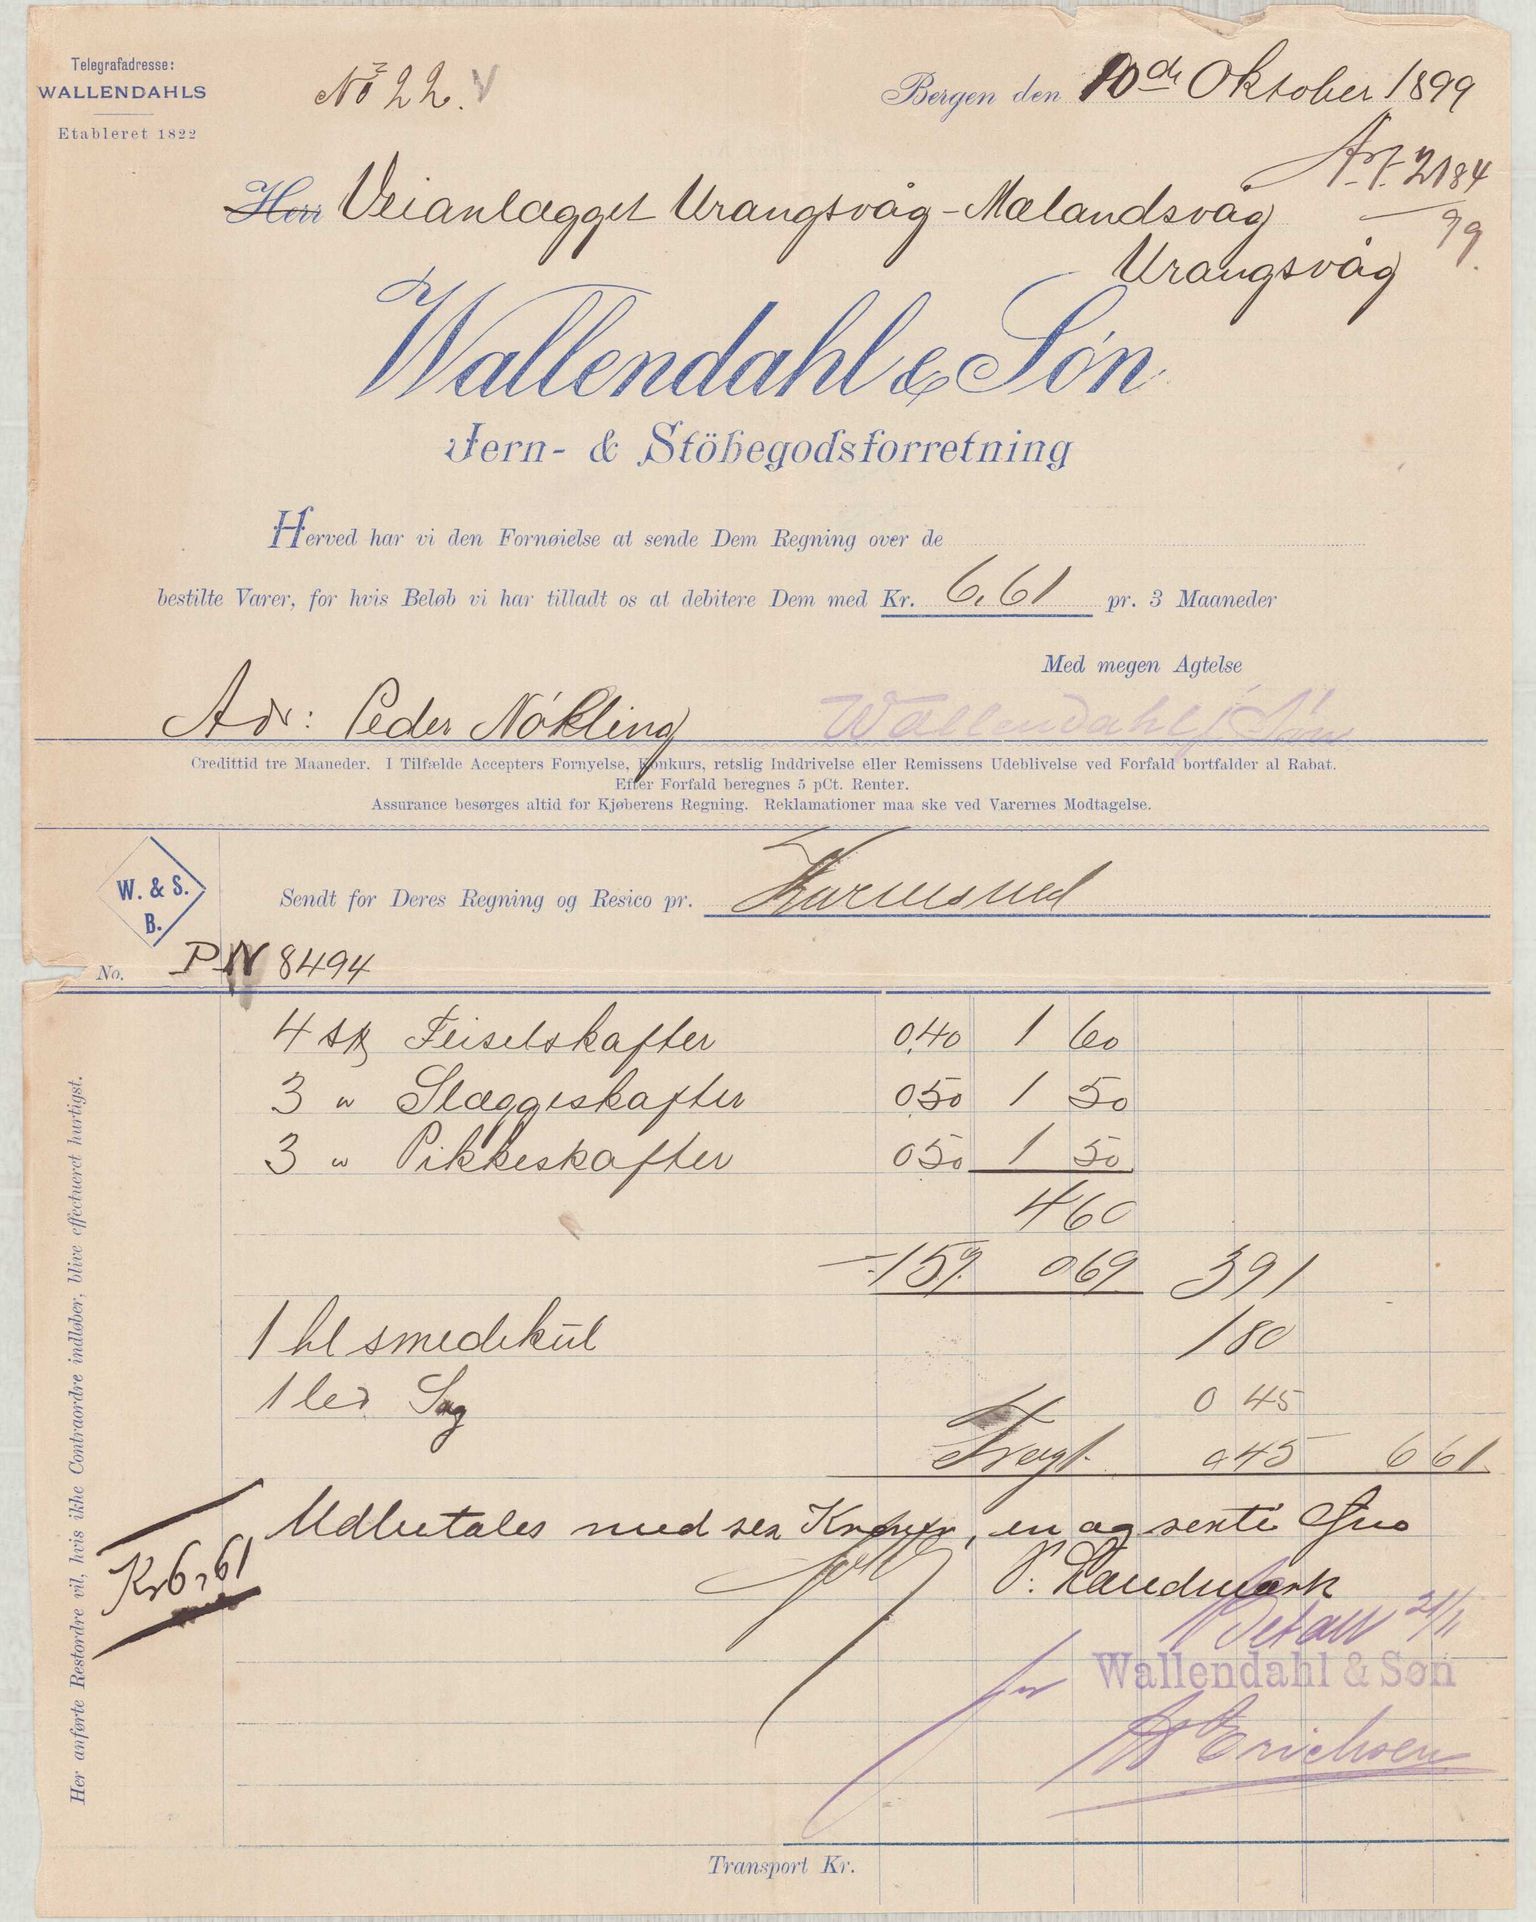 Telegrafadresse:
WALLENDAHLS
Etableret 1822
No 22.
Bergen den 10de Oktober 1899
2184
99.
Herr Veianlægget Urangsvåg-Mælandsvåg
Urangsvåg
Wallendahl & Søn
Jern- & Stöbegodsforretning
Herved har vi den Fornøielse at sende Dem Regning over de
bestilte Varer, for hvis Beløb vi har tilladt os at debitere Dem med Kr. 6,61 pr. 3 Maaneder
Med megen Agtelse
Adr: Peder Nökling Wallendahl & Søn
Credittid tre Maaneder. I Tilfælde Accepters Fornyelse, Konkurs, retslig Inddrivelse eller Remissens Udeblivelse ved Forfald bortfalder al Rabat.
Efter Forfald beregnes 5 pCt. Renter.
Assurance besørges altid for Kjøberens Regning. Reklamationer maa ske ved Varernes Modtagelse.
W. & S.
B.
Sendt for Deres Regning og Resico pr. Karmsund
No. PN 8494
4 stk Feiselskafter 0,40 1 60
3 " Slæggeskafter 0,50 1 50
3 " Pikkeskafter 0 50 1 50
4 60
÷ 15% 0 69 3 91
1 hl smedekul 1 80
1 0 45
Fragt 0 45 6 61
Udbetales med sex Kroner, en og sexti Øre
Kr 6,61
P. Landmark
Betalt 21/11
for Wallendahl & Søn
Erichsen
Her anførte Restordre vil, hvis ikke Contraordre indløber, blive effectueret hurtigst.
Transport Kr.